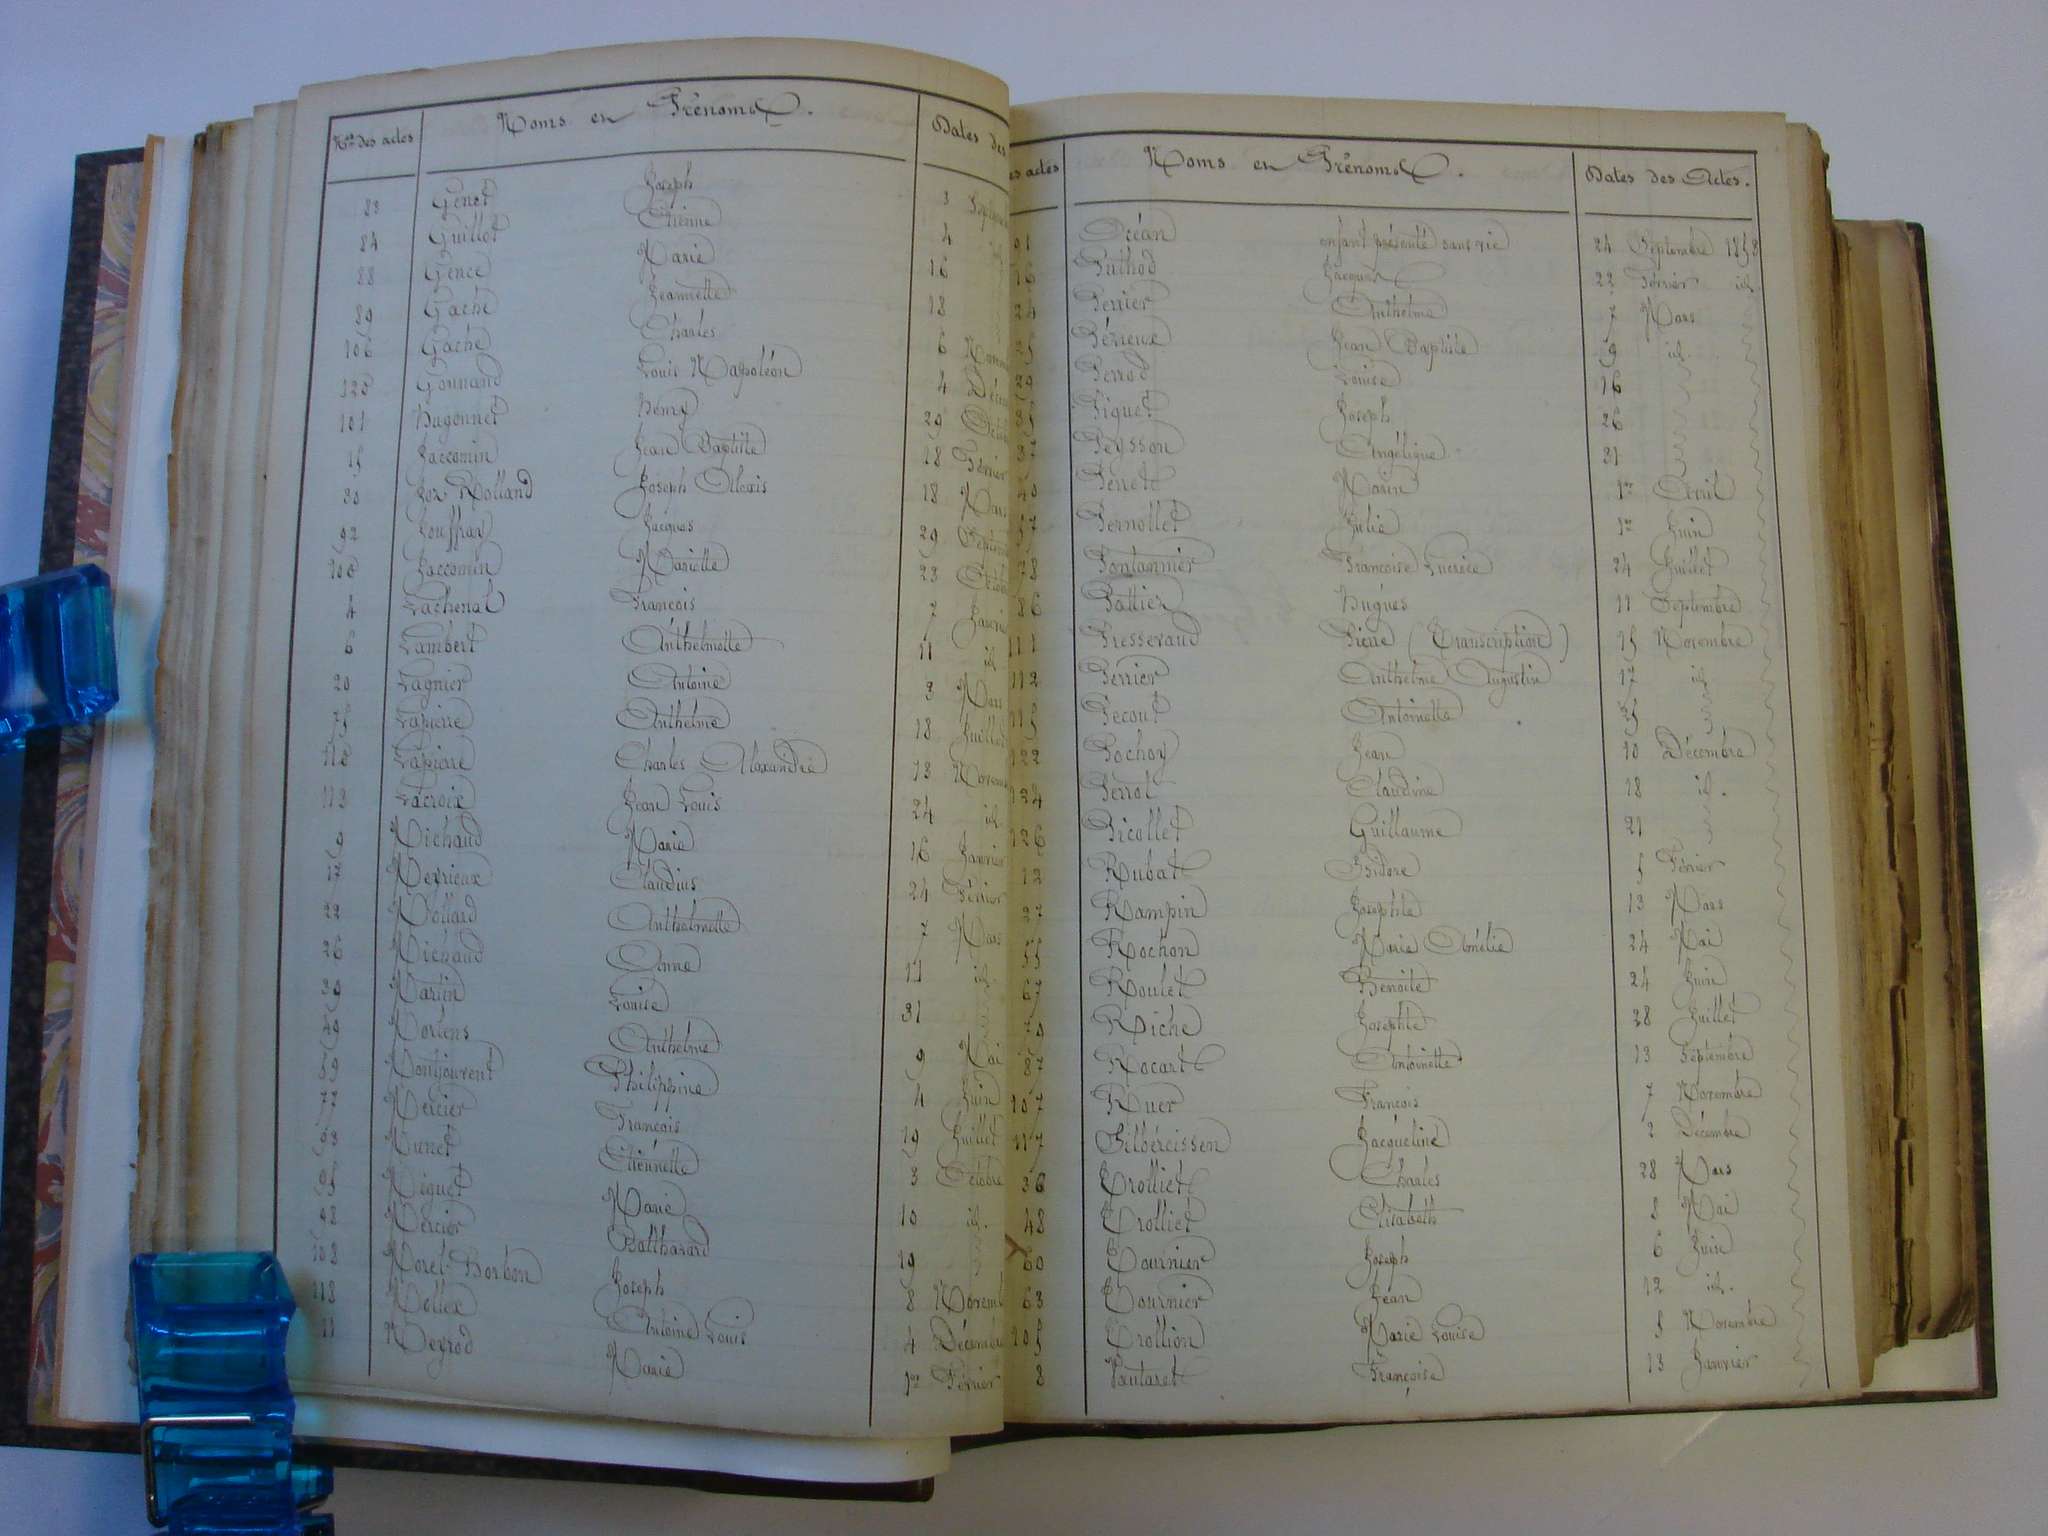 Nos des actes Noms et Prénoms. Dates des
83 Genet Joseph 3 Septem
84 Guillot Etienne 4 id.
88 Gence Marie 16
89 Gaché Jeannette 18
106 Gaché Charles 6 Novem
120 Gonnand Louis Napoléon 4 Décem
101 Hugonnet Hémy 29 Octob
15 Jaccomin Jean Baptiste 18 Février
30 Joz-Rolland Joseph Alexis 18 Mars
92 Jouffray Jacques 29 Septem
100 Jaccomin Mariette 23 Octob
4 Lachenal François 7 Janvie
6 Lambert Anthelmette 11 id.
20 Lagnier Antoine 3 Mars
75 Lapierre Anthelme 18 Juillet
110 Lapierre Charles Alexandre 13 Novem
113 Lacroix Jean Louis 24 id.
9 Michaud Marie 16 Janvier
17 Meyrieux Claudius 24 Février
22 Mollard Anthelmette 7 Mars
26 Michaud Anne 11 id.
38 Martin Louise 31
49 Mortens Anthelme 9 Mai
59 Montjouvent Philippine 4 Juin
77 Mercier François 19 Juillet
93 Munet Etiennette 3 Octobre
95 Miguet Marie 10 id.
98 Mercier Balthazard 19
108 Morel-Borbon Joseph 8 Novemb
118 Mollex Antoine Louis 4 Décembre
11 Neyrod Marie 1er Février
es actes Noms et Prénoms. Dates des Actes.
91 Océan enfant présenté sans vie 24 Septembre 1858
16 Puthod Jacques 22 Février id.
24 Perrier Anthelme 7 Mars
25 Périeux Jean Baptiste 9 id.
29 Perrod Louise 16
35 Piguet Joseph 26
37 Peysson Angélique 31
40 Perret Marin 1er Avril
57 Pernollet Julie 1er Juin
78 Pontannier Françoise Lucrèce 24 Juillet
86 Pattier Hugues 11 Septembre
111 Pressevaud Pierre (Transcription) 15 Novembre
112 Perrier Anthelme Augustin 17 id.
115 Pecout Antoinette 25
122 Pochoy Jean 10 Décembre
124 Perrot Claudine 18 id.
126 Picollet Guillaume 21
12 Rubat Isidore 5 Février
27 Rampin Josephte 13 Mars
55 Rochon Marie Amélie 24 Mai
67 Roulet Benoite 24 Juin
Riche Josephte 28 Juillet
87 Rocart Antoinette 13 Septembre
107 Ruer François 7 Novembre
117 Silbereissen Jacqueline 2 Décembre
36 Trolliet Charles 28 Mars
48 Trolliet Elisabeth 8 Mai
60 Tournier Joseph 6 Juin
63 Tournier Jean 12 id.
105 Trollion Marie Louise 5 Novembre
8 Vautaret Françoise 13 Janvier